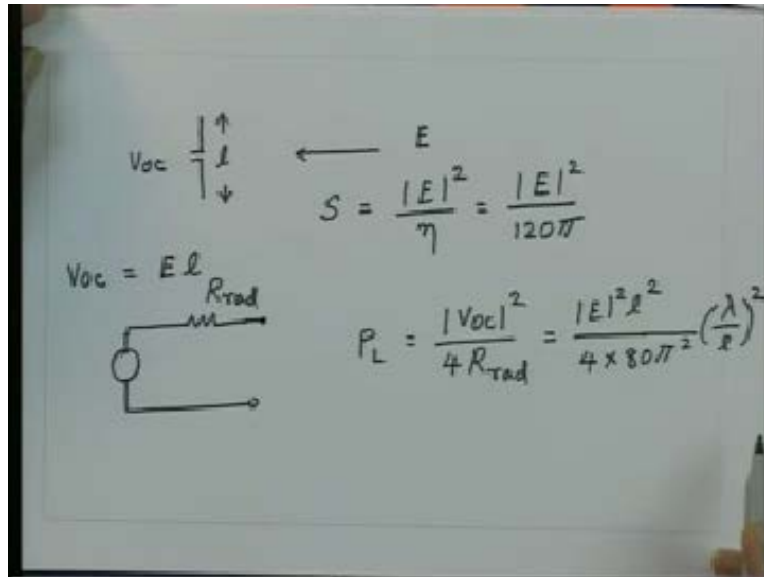 Voc l E
S = |E|² / η = |E|² / 120π
Voc = E l
Rrad
P_L = |Voc|² / 4 Rrad = |E|² l² / 4 × 80π² (λ/l)²